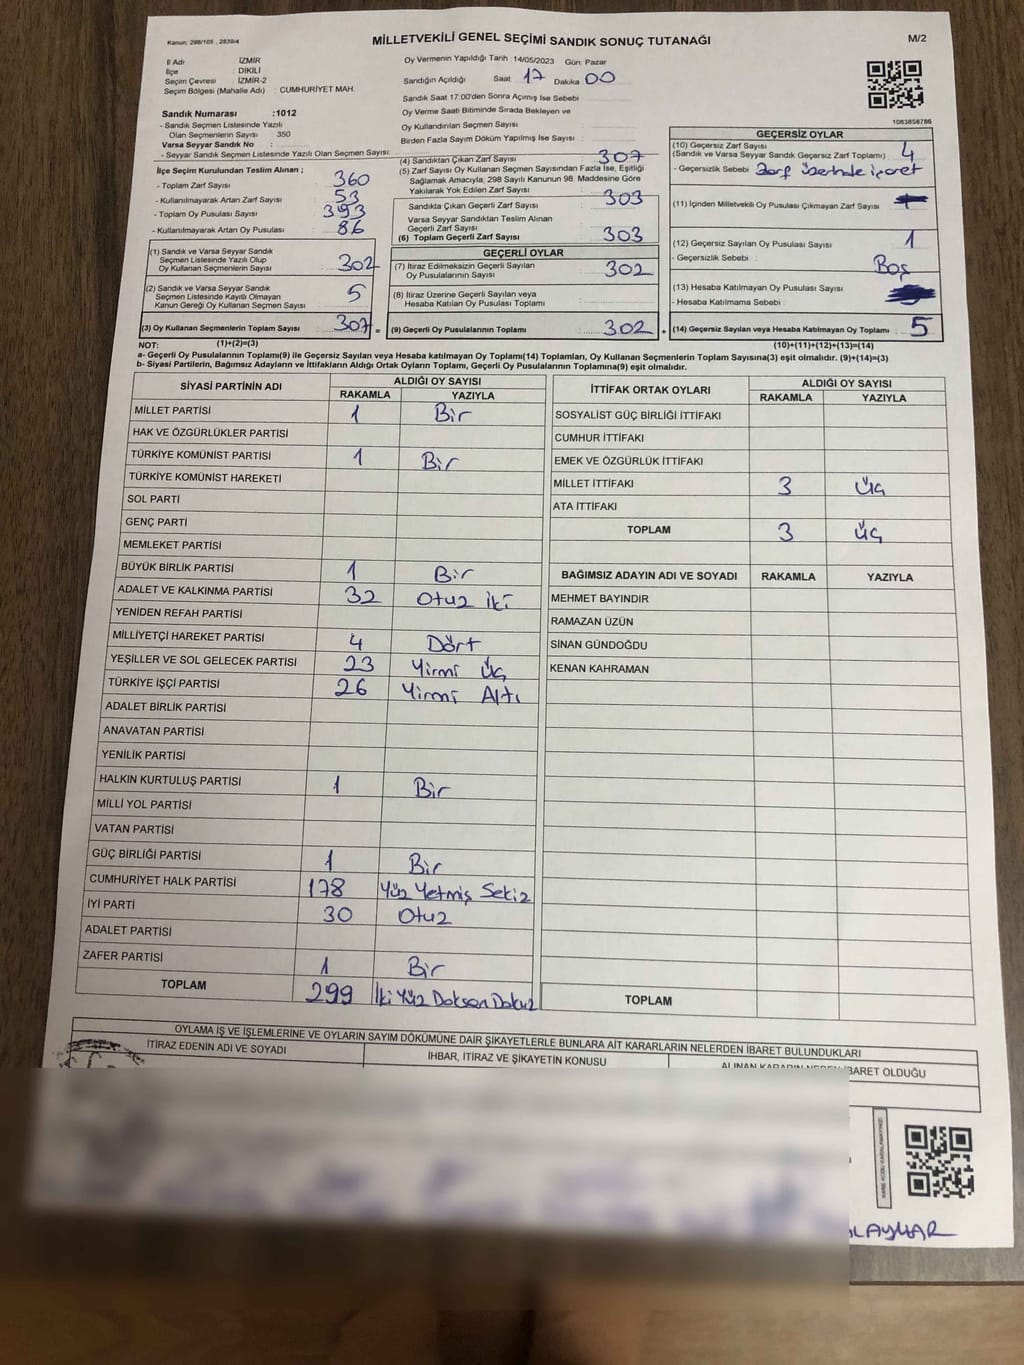 Kanun: 298/105 , 2839/4
MİLLETVEKİLİ GENEL SEÇİMİ SANDIK SONUÇ TUTANAĞI
M/2
İl Adı : İZMİR
İlçe : DİKİLİ
Seçim Çevresi : İZMİR-2
Seçim Bölgesi (Mahalle Adı) : CUMHURİYET MAH.
Oy Vermenin Yapıldığı Tarih :14/05/2023 Gün: Pazar
Sandığın Açıldığı Saat: 17 Dakika 00
Sandık Saat 17:00'den Sonra Açılmış İse Sebebi
Oy Verme Saati Bitiminde Sırada Bekleyen ve
Oy Kullandırılan Seçmen Sayısı
Birden Fazla Sayım Döküm Yapılmış İse Sayısı :
Sandık Numarası :1012
- Sandık Seçmen Listesinde Yazılı
Olan Seçmenlerin Sayısı : 350
Varsa Seyyar Sandık No :
- Seyyar Sandık Seçmen Listesinde Yazılı Olan Seçmen Sayısı:
İlçe Seçim Kurulundan Teslim Alınan ;
- Toplam Zarf Sayısı : 360
- Kullanılmayarak Artan Zarf Sayısı : 53
- Toplam Oy Pusulası Sayısı : 393
- Kullanılmayarak Artan Oy Pusulası : 86
(1) Sandık ve Varsa Seyyar Sandık
Seçmen Listesinde Yazılı Olup
Oy Kullanan Seçmenlerin Sayısı : 302
(2) Sandık ve Varsa Seyyar Sandık
Seçmen Listesinde Kayıtlı Olmayan
Kanun Gereği Oy Kullanan Seçmen Sayısı : 5
(3) Oy Kullanan Seçmenlerin Toplam Sayısı : 307 =
(4) Sandıktan Çıkan Zarf Sayısı 307
(5) Zarf Sayısı Oy Kullanan Seçmen Sayısından Fazla İse, Eşitliği
Sağlamak Amacıyla; 298 Sayılı Kanunun 98. Maddesine Göre
Yakılarak Yok Edilen Zarf Sayısı :
Sandıkta Çıkan Geçerli Zarf Sayısı : 303
Varsa Seyyar Sandıktan Teslim Alınan
Geçerli Zarf Sayısı :
(6) Toplam Geçerli Zarf Sayısı : 303
GEÇERLİ OYLAR
(7) İtiraz Edilmeksizin Geçerli Sayılan
Oy Pusulalarının Sayısı : 302
(8) İtiraz Üzerine Geçerli Sayılan veya
Hesaba Katılan Oy Pusulası Toplamı :
(9) Geçerli Oy Pusulalarının Toplamı : 302 +
1083858786
GEÇERSİZ OYLAR
(10) Geçersiz Zarf Sayısı
(Sandık ve Varsa Seyyar Sandık Geçersiz Zarf Toplamı) : 4
- Geçersizlik Sebebi : Zarf üzerinde işaret
(11) İçinden Milletvekili Oy Pusulası Çıkmayan Zarf Sayısı :
(12) Geçersiz Sayılan Oy Pusulası Sayısı : 1
- Geçersizlik Sebebi : Boş
(13) Hesaba Katılmayan Oy Pusulası Sayısı :
- Hesaba Katılmama Sebebi :
(14) Geçersiz Sayılan veya Hesaba Katılmayan Oy Toplamı : 5
NOT: (1)+(2)=(3) (10)+(11)+(12)+(13)=(14)
a- Geçerli Oy Pusulalarının Toplamı(9) ile Geçersiz Sayılan veya Hesaba katılmayan Oy Toplamı(14) Toplamları, Oy Kullanan Seçmenlerin Toplam Sayısına(3) eşit olmalıdır. (9)+(14)=(3)
b- Siyasi Partilerin, Bağımsız Adayların ve İttifakların Aldığı Ortak Oyların Toplamı, Geçerli Oy Pusulalarının Toplamına(9) eşit olmalıdır.
SİYASİ PARTİNİN ADI
ALDIĞI OY SAYISI
RAKAMLA YAZIYLA
MİLLET PARTİSİ 1 Bir
HAK VE ÖZGÜRLÜKLER PARTİSİ
TÜRKİYE KOMÜNİST PARTİSİ 1 Bir
TÜRKİYE KOMÜNİST HAREKETİ
SOL PARTİ
GENÇ PARTİ
MEMLEKET PARTİSİ
BÜYÜK BİRLİK PARTİSİ 1 Bir
ADALET VE KALKINMA PARTİSİ 32 Otuz iki
YENİDEN REFAH PARTİSİ
MİLLİYETÇİ HAREKET PARTİSİ 4 Dört
YEŞİLLER VE SOL GELECEK PARTİSİ 23 Yirmi Üç
TÜRKİYE İŞÇİ PARTİSİ 26 Yirmi Altı
ADALET BİRLİK PARTİSİ
ANAVATAN PARTİSİ
YENİLİK PARTİSİ
HALKIN KURTULUŞ PARTİSİ 1 Bir
MİLLİ YOL PARTİSİ
VATAN PARTİSİ
GÜÇ BİRLİĞİ PARTİSİ 1 Bir
CUMHURİYET HALK PARTİSİ 178 Yüz Yetmiş Sekiz
İYİ PARTİ 30 Otuz
ADALET PARTİSİ
ZAFER PARTİSİ 1 Bir
TOPLAM 299 İki Yüz Doksan Dokuz
İTTİFAK ORTAK OYLARI
ALDIĞI OY SAYISI
RAKAMLA YAZIYLA
SOSYALİST GÜÇ BİRLİĞİ İTTİFAKI
CUMHUR İTTİFAKI
EMEK VE ÖZGÜRLÜK İTTİFAKI
MİLLET İTTİFAKI 3 Üç
ATA İTTİFAKI
TOPLAM 3 Üç
BAĞIMSIZ ADAYIN ADI VE SOYADI RAKAMLA YAZIYLA
MEHMET BAYINDIR
RAMAZAN ÜZÜN
SİNAN GÜNDOĞDU
KENAN KAHRAMAN
TOPLAM
OYLAMA İŞ VE İŞLEMLERİNE VE OYLARIN SAYIM DÖKÜMÜNE DAİR ŞİKAYETLERLE BUNLARA AİT KARARLARIN NELERDEN İBARET BULUNDUKLARI
İTİRAZ EDENİN ADI VE SOYADI
İHBAR, İTİRAZ VE ŞİKAYETİN KONUSU
ALINAN KARARIN NEDEN İBARET OLDUĞU